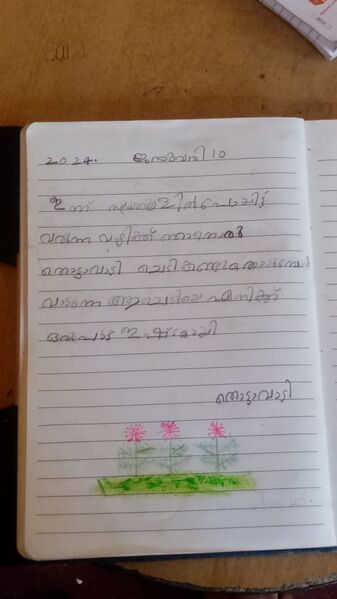 2024. ജനുവരി 10
ഇന്ന് സ്കൂളിൽ പോയിട്ട്
വരുന്ന വഴിക്ക് ഞാനൊരു
തൊട്ടാവാടി ചെടി കണ്ടു തൊടുമ്പോൾ
വാടുന്ന ആ ചെടിയെ എനിക്ക്
ഒരുപാട് ഇഷ്ടമായി
തൊട്ടാവാടി